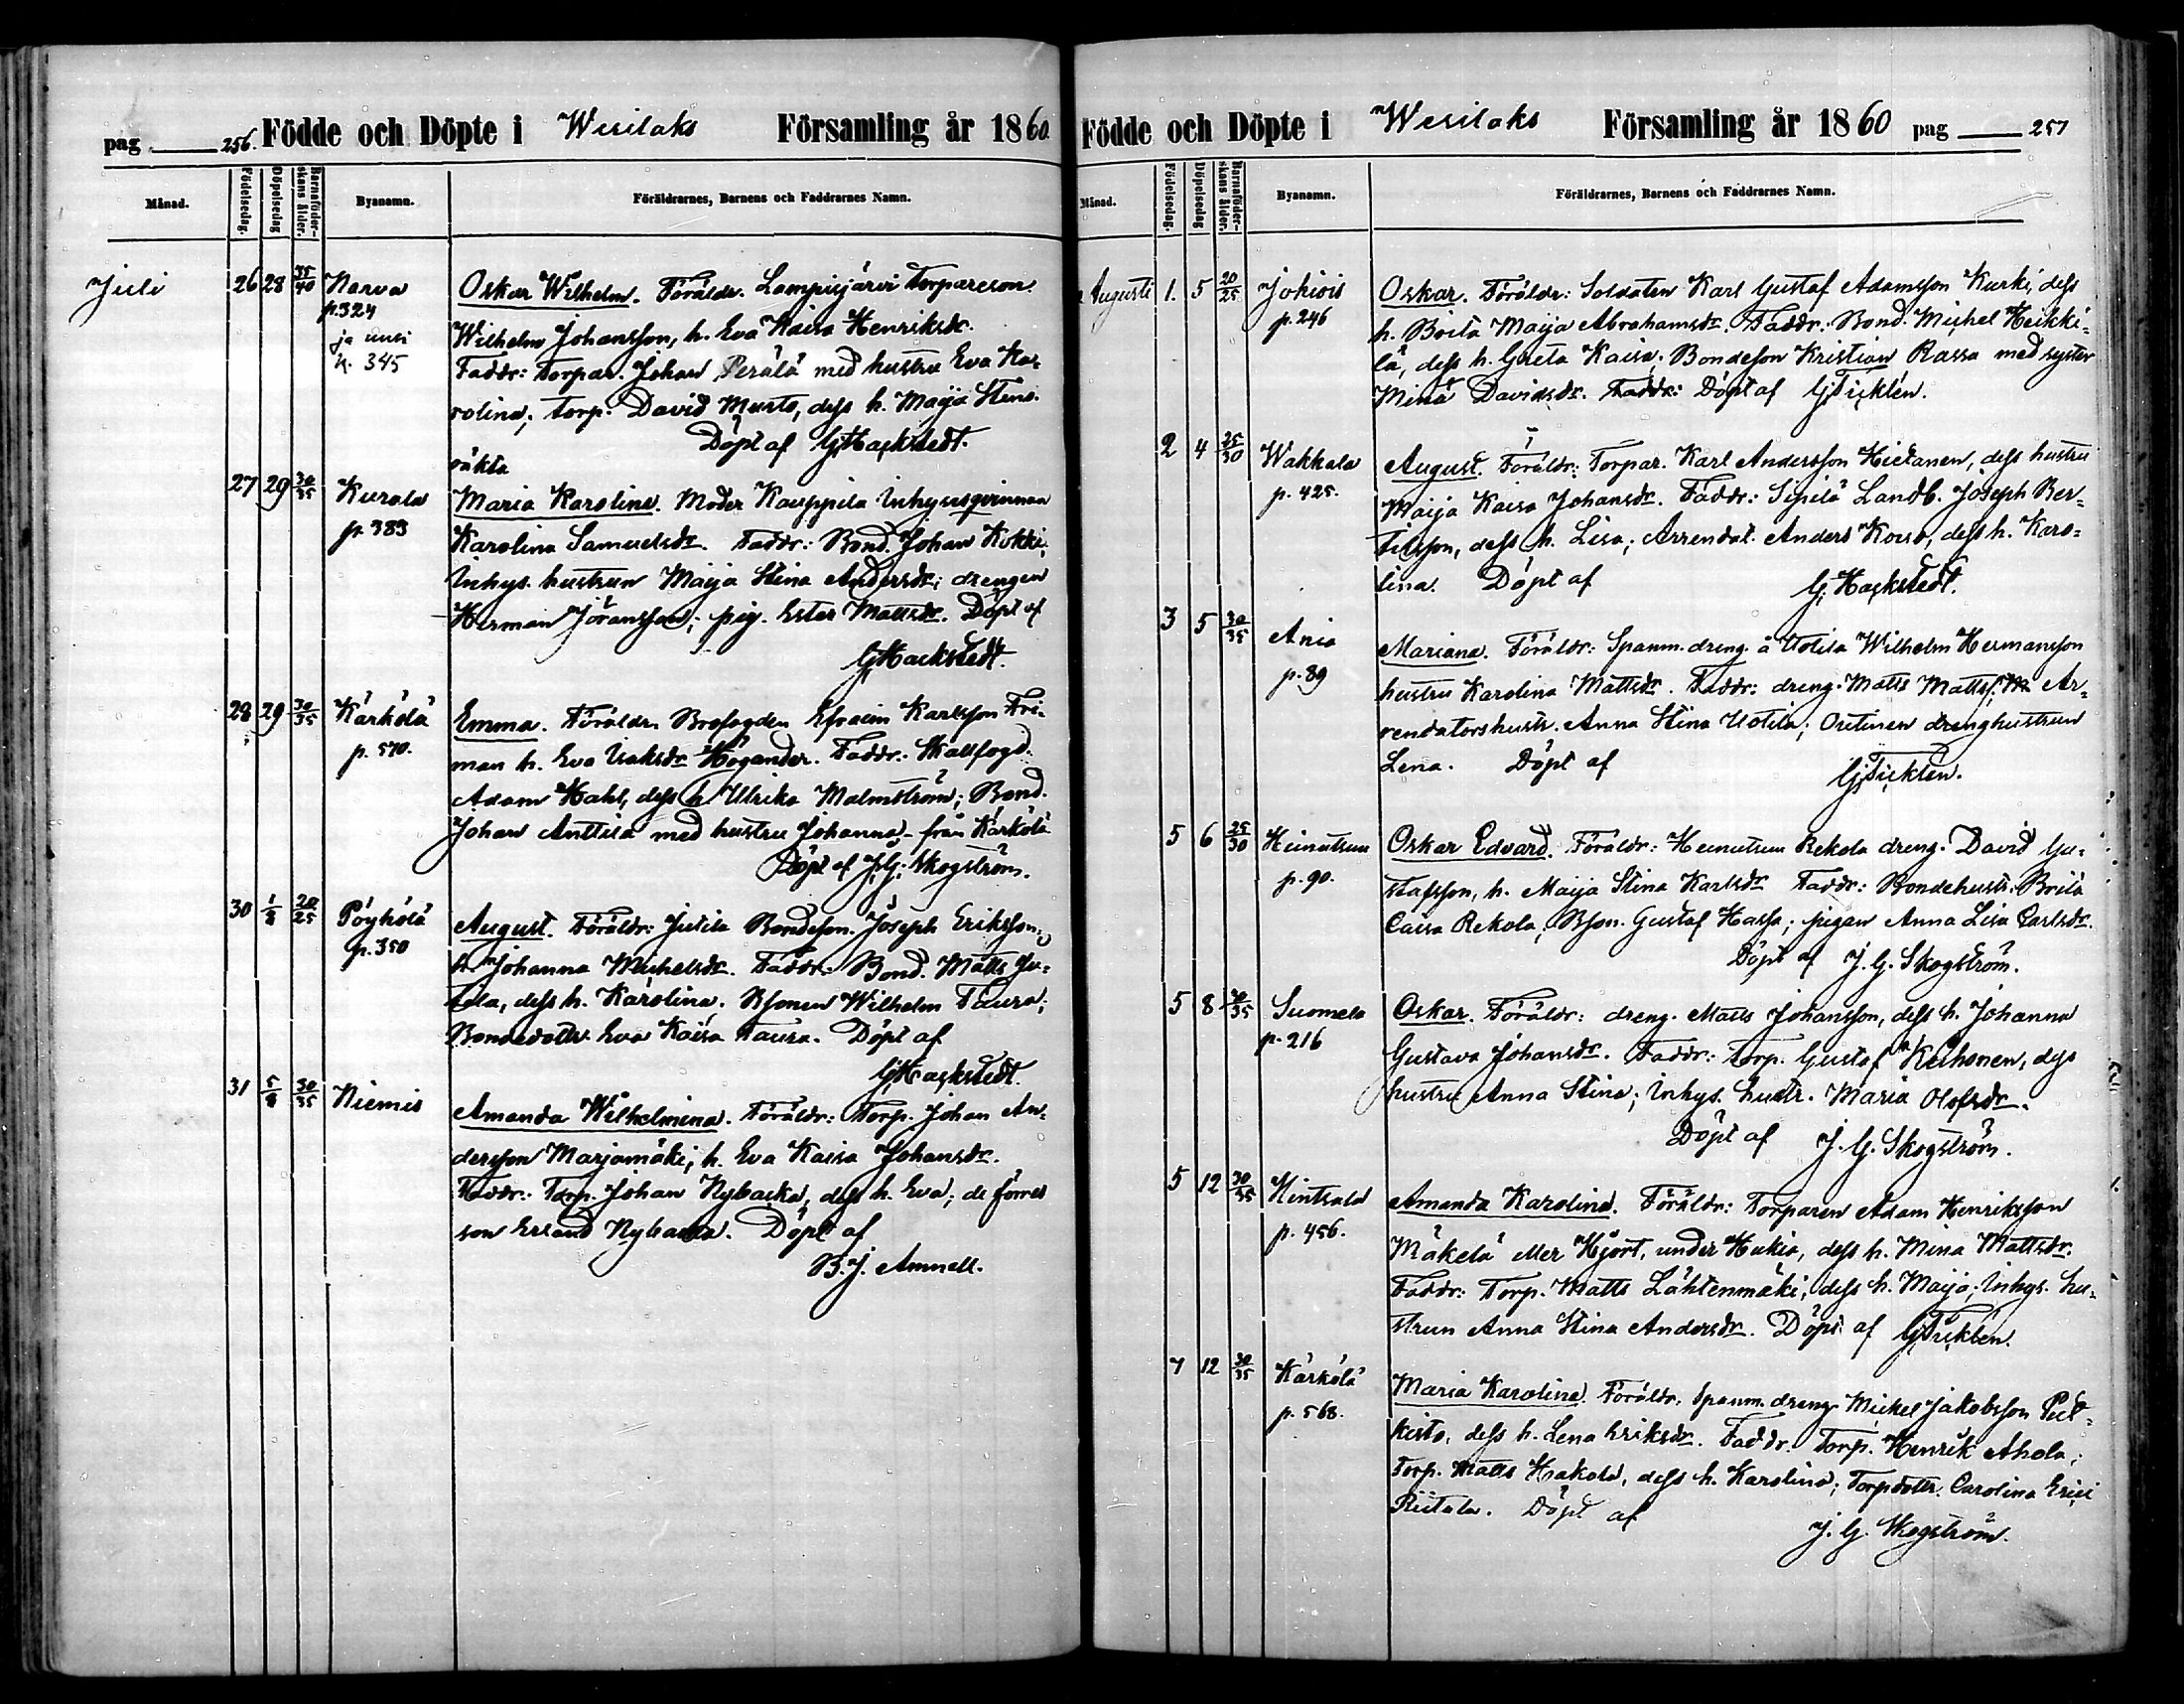 pag 256. Födde och Döpte i Wesilaks Församling år 1860
Månad. Födelsedag. Döpelsedag Barnaföderskans ålder. Byanamn. Föräldrarnes, Barnens och Faddrarnes Namn.
Juli 26 28 35/40 Narva Oskar Wilhelm. Föräldr. Lampisjärvi torpareson
p. 324 Wilhelm Johansson, h. Eva Kaisa Henriksdr.
ja uusi Faddr: torpar. Johan Perälä med hustru Eva Ka-
k. 345 rolina; torp. David Musto, dess h. Maija Stina.
Döpt af G Hackstedt.
oäkta
27 29 30/35 Kurala Maria Karolina. Moder Kauppila Inhysesqvinnan
p. 383 Karolina Samuelsdr. Faddr: Bond. Johan Kokki;
Inhys. hustrun Maija Stina Andersdr; drengen
Herman Jöransson; pig. Ester Mattsdr. Döpt af
G Hackstedt.
28 29 30/35 Kärkölä Emma. Föräldr. Brofogden Efraim Karlsson Fri-
p. 570. man h. Eva Isaksdr Högander. Faddr: Skallfogd.
Adam Hahl, dess h. Ulrika Malmström; Bond.
Johan Anttila med hustru Johanna, från Kärkölä
Döpt af J. G. Skogström.
30 1/8 20/25 Pöyhölä August. Föräldr: Jutila Bondeson. Joseph Eriksson,
p. 350 h. Johanna Michelsdr. Faddr: Bond. Matts Ju-
tila, dess h. Karolina; Bsonen Wilhelm Taura;
Bondedottr. Eva Kaisa Taura. Döpt af
G Hackstedt.
31 5/8 30/35 Niemis Amanda Wilhelmina. Föräldr: Torp. Johan An-
dersson Marjamäki, h. Eva Kaisa Johansdr.
Faddr: Torp. Johan Nybacka, dess h. Eva; de förres
son Erland Nybacka. Döpt af
B. J. Amnell.
Födde och Döpte i Wesilaks Församling år 1860 pag 257
Månad. Födelsedag. Döpelsedag Barnaföderskans ålder. Byanamn. Föräldrarnes, Barnens och Faddrarnes Namn.
Augusti 1. 5 20/25 Johiois Oskar. Föräldr: Soldaten Karl Gustaf Adamsson Kurki, dess
p. 246 h. Brita Maija Abrahamsdr. Faddr. Bond. Michel Heikki-
lä, dess h. Greta Kaisa; Bondeson Kristian Rassa med syster
Mina Davidsdr. Döpt af G Ticklén.
2 4 25/30 Wakkala August. Föräldr: Torpar. Karl Andersson Hietanen, dess hustru
p. 425. Maija Kaisa Johansdr. Faddr: Sipilä Landb. Joseph Ber-
tilsson, dess h. Lisa; Arrendat. Anders Koivo, dess h. Karo-
lina. Döpt af G. Hackstedt.
3 5 30/35 Ania Mariana. Föräldr: Spanm. dreng. å Uotila Wilhelm Hermansson
p. 89 hustru Karolina Mattsdr. Faddr: dreng. Matts Mattss. Ar-
rendatorshustr. Anna Stina Uotila; drenghustrun
Lena. Döpt af G Ticklén.
5 6 25/30 Heinutsuu Oskar Edvard. Föräldr: Heinutsuu Rekola dreng. David Gu-
p. 90. stafsson, h. Maija Stina Karlsdr Faddr: Bondehustr. Brita
Caisa Rekola; Bson. Gustaf Hassa; pigan Anna Lisa Carlsdr.
Döpt af J. G. Skogström.
5 8 30/35 Suomela Oskar. Föräldr: dreng. Matts Johansson, dess h. Johanna
p. 216 Gustava Johansdr. Faddr: Torp. Gustaf Keihonen, dess
hustru Anna Stina; Inhys. hustr. Maria Olofsdr.
Döpt af J. G. Skogström.
5 12 30/35 Hintsala Amanda Karolina. Föräldr: Torparen Adam Henriksson
p. 456. Mäkelä eller Hjort, under Hukia, dess h. Mina Mattsdr.
Faddr: Torp. Matts Lähteenmäki, dess h. Maija; Inhys. hu-
strun Anna Stina Andersdr. Döpt af G Ticklén.
7 12 30/35 Kärkölä Maria Karolina. Föräldr: Spanm. dreng Mickel Jakobsson Pul-
p. 568. kisto, dess h. Lena Eriksdr. Faddr. Torp. Henrik Ahola;
Torp. Matts Hakola, dess h. Karolina; Torpdottr. Carolina Erici
Riitala. Döpt af
J. G. Skogström.